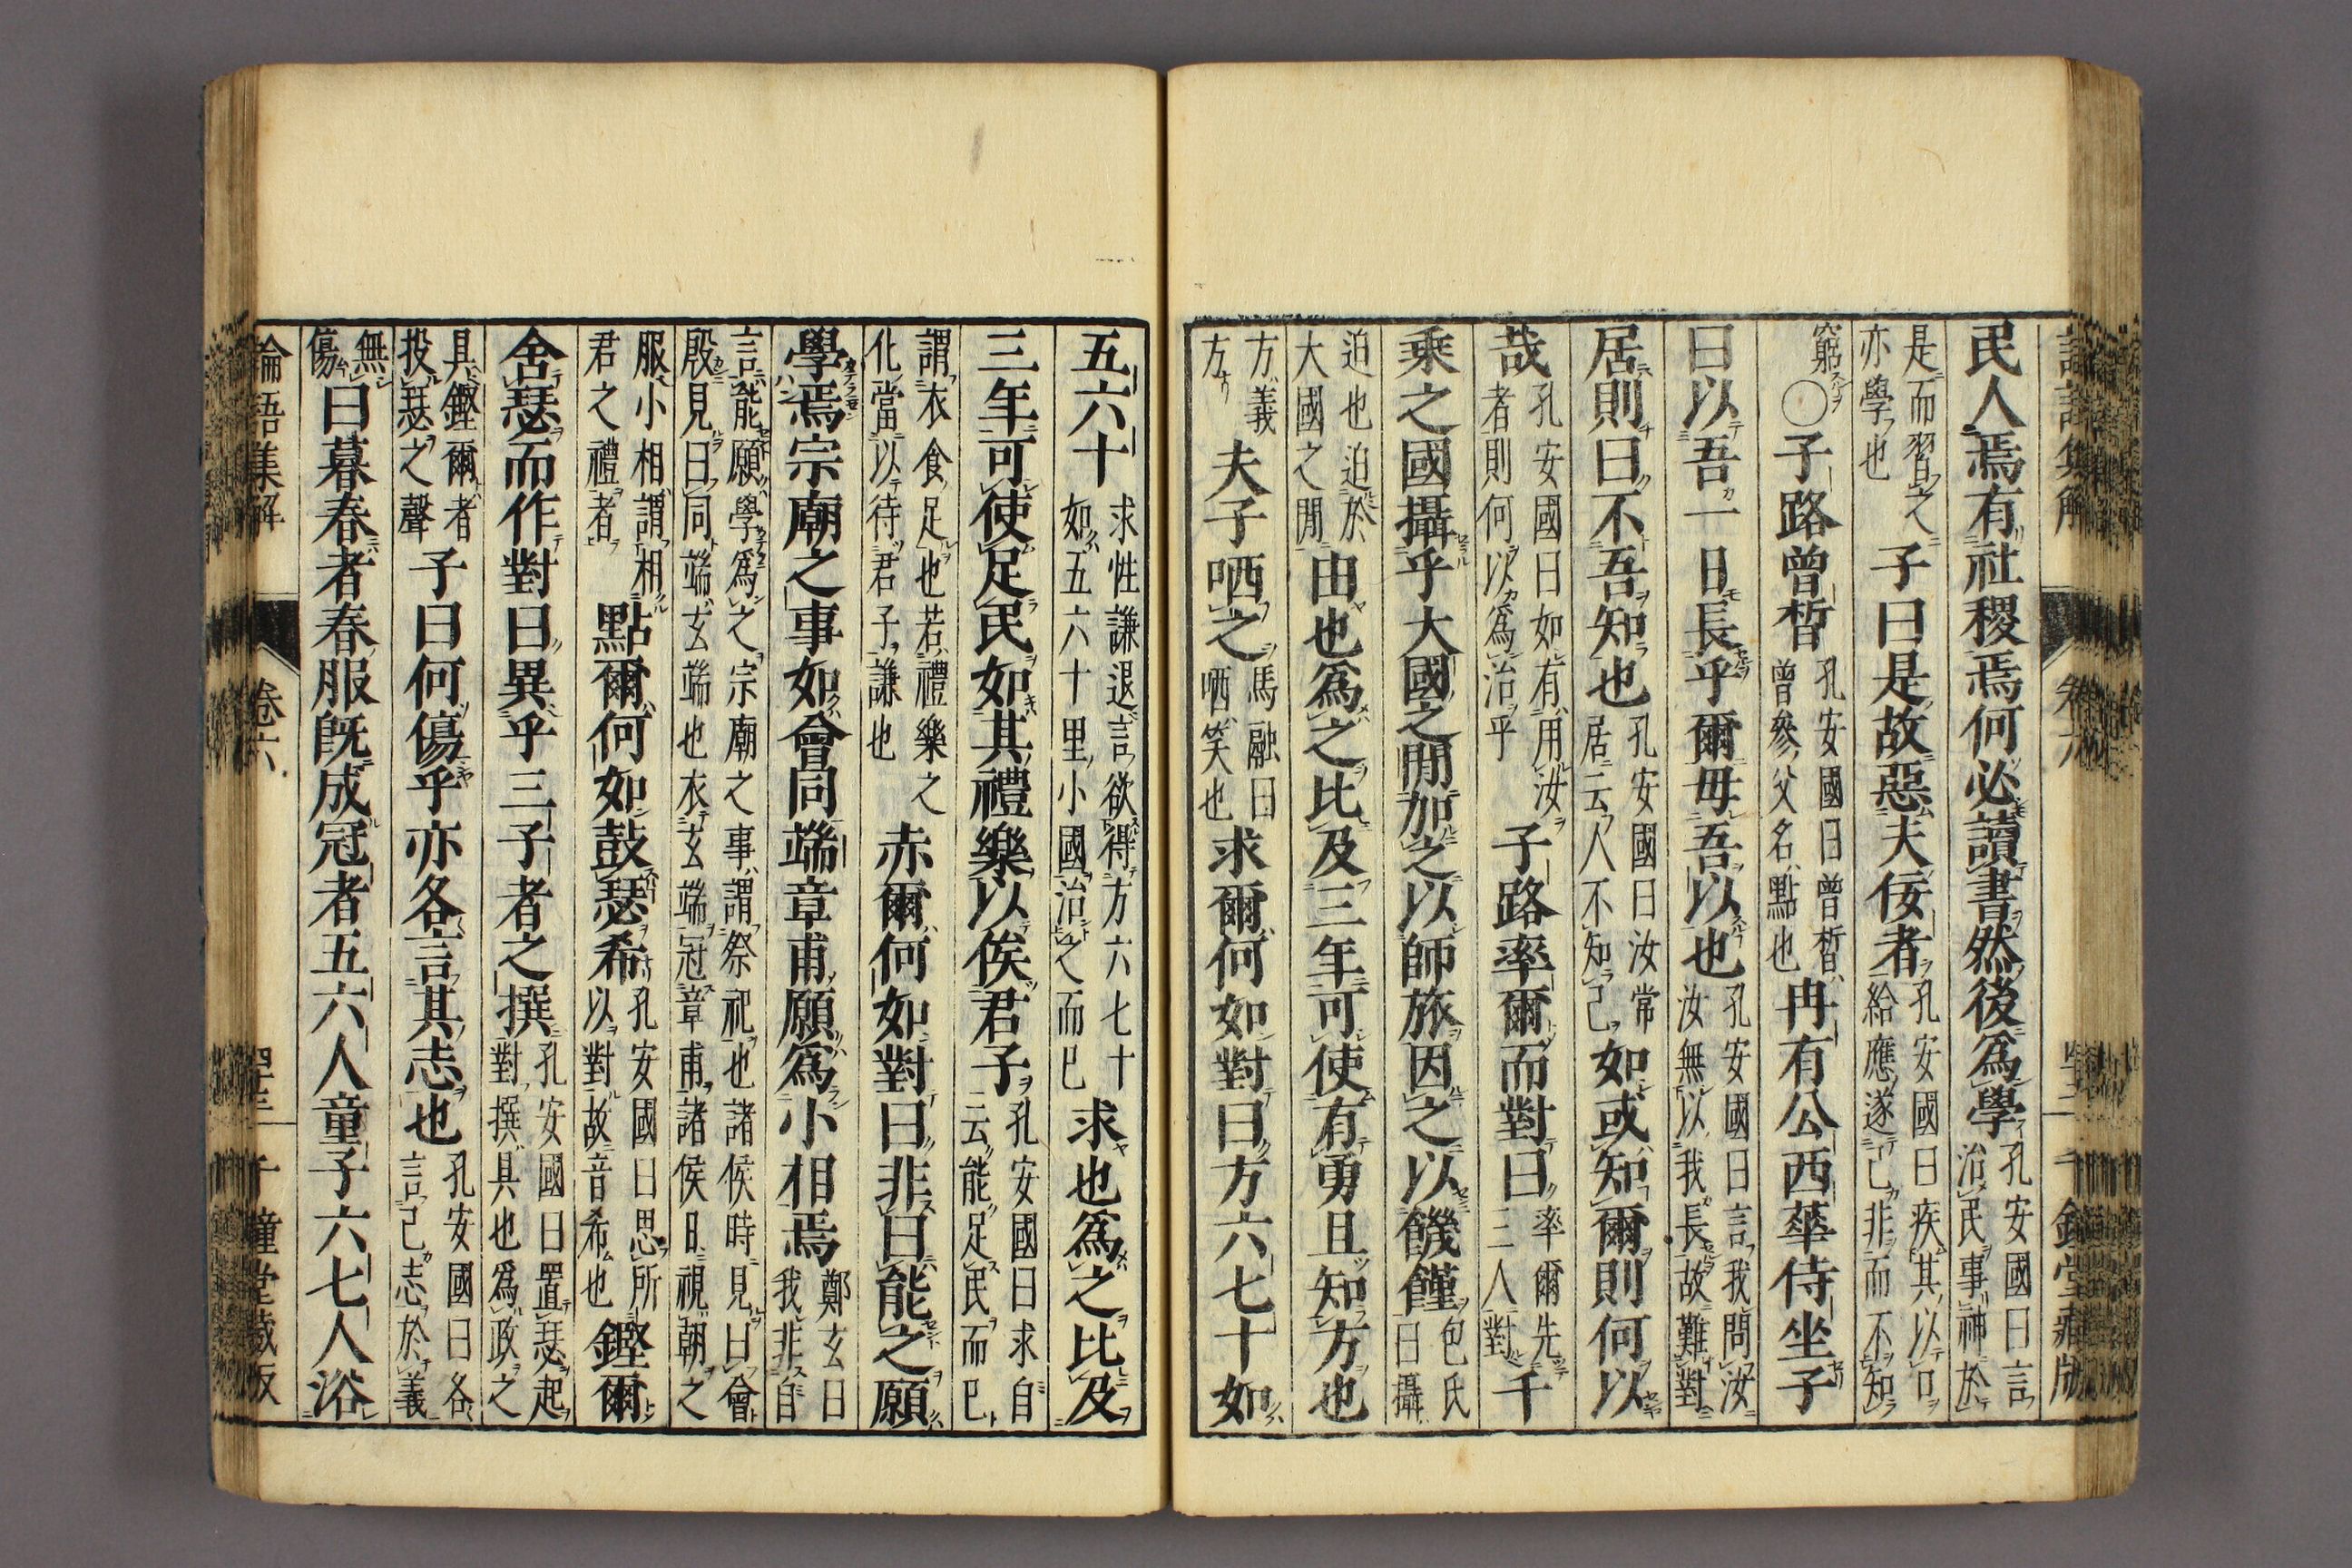 民人焉有社稷焉何必讀書然後爲學孔安國曰言治民事神於
是而習之亦學也子曰是故惡夫佞者孔安國曰疾其以口給應遂己非而不知
窮○子路曾晳孔安國曰曾晳曾參父名點也冉有公西華侍坐子
曰以吾一日長乎爾毋吾以也孔安國曰言我問汝汝無以我長故難對
居則曰不吾知也孔安國曰汝常居云人不知己如或知爾則何以
哉孔安國曰如有用汝者則何以爲治乎子路率爾而對曰率爾先三人對千
乘之國攝乎大國之閒加之以師旅因之以饑饉包氏曰攝
迫也迫於大國之閒由也爲之比及三年可使有勇且知方也
方義方夫子哂之馬融曰哂笑也求爾何如對曰方六七十如
五六十求性謙退言欲得方六七十如五六十里小國治之而已求也爲之比及
三年可使足民如其禮樂以俟君子孔安國曰求自云能足民而已
謂衣食足也若禮樂之化當以待君子謙也赤爾何如對曰非曰能之願
學焉宗廟之事如會同端章甫願爲小相焉鄭玄曰我非自
言能願學爲之宗廟之事謂祭祀也諸侯時見曰會殷見曰同端玄端也衣玄端冠章甫諸侯日視朝之
服小相謂相君之禮者點爾何如鼓瑟希孔安國曰思所以對故音希也鏗爾
舍瑟而作對曰異乎三子者之撰孔安國曰置瑟起對撰具也爲政之
具鏗爾者投瑟之聲子曰何傷乎亦各言其志也孔安國曰各言己志於義
無傷曰暮春者春服既成冠者五六人童子六七人浴
論語集解 卷六 千鐘堂藏版